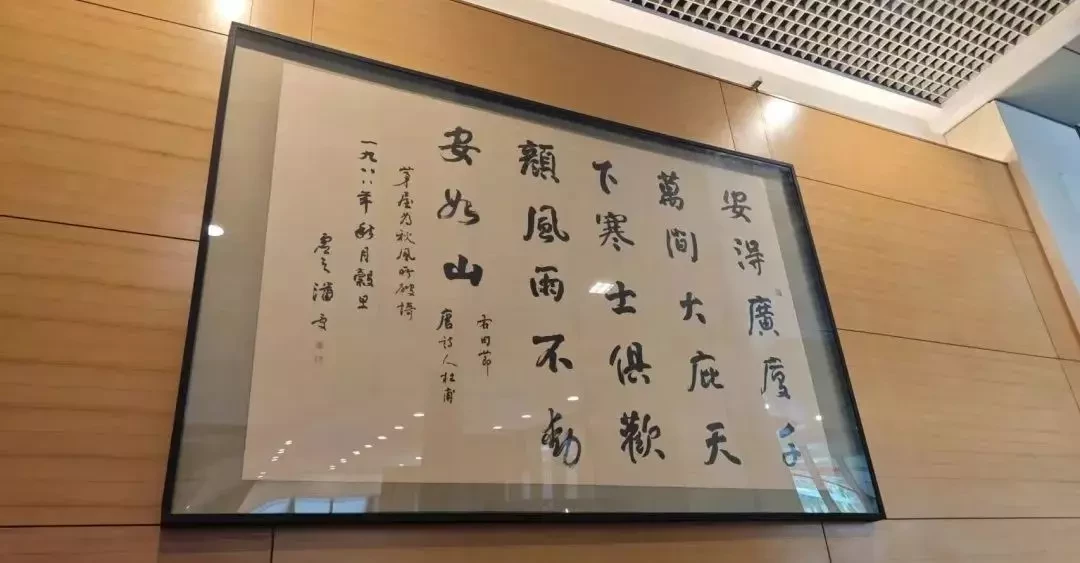 安得廣廈千
萬間大庇天
下寒士俱歡
顏風雨不動
安如山
右 節
唐詩人杜甫
茅屋為秋風所破
一九八八年秋月穀旦
虛之潘受